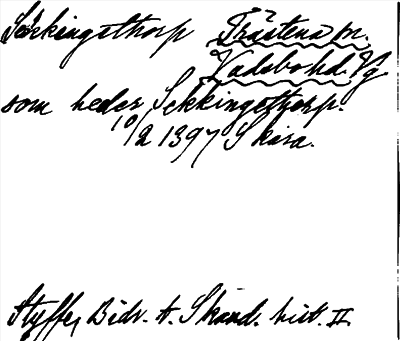 Sekkingsthorp Trästena sn.
Vadsbo hd. Vg
som heder Sekkingsthorp.
10/2 1397 Skara.
Styffe, Bidr. t. Skand. hist. II